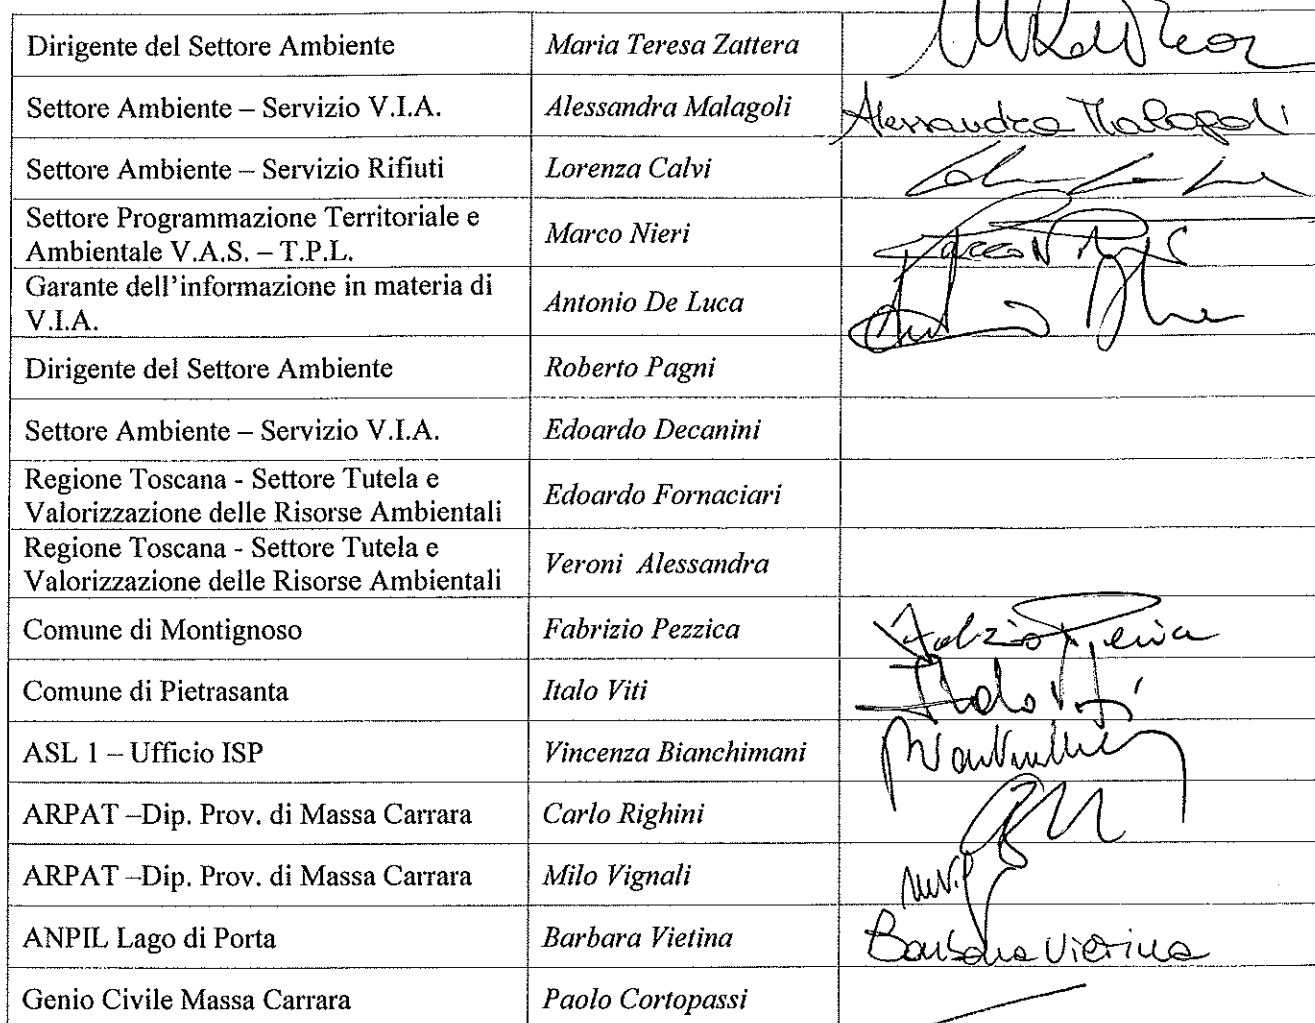 Dirigente del Settore Ambiente Maria Teresa Zattera
Settore Ambiente – Servizio V.I.A. Alessandra Malagoli Alessandra Malagoli
Settore Ambiente – Servizio Rifiuti Lorenza Calvi
Settore Programmazione Territoriale e
Ambientale V.A.S. – T.P.L. Marco Nieri
Garante dell'informazione in materia di
V.I.A. Antonio De Luca
Dirigente del Settore Ambiente Roberto Pagni
Settore Ambiente – Servizio V.I.A. Edoardo Decanini
Regione Toscana - Settore Tutela e
Valorizzazione delle Risorse Ambientali Edoardo Fornaciari
Regione Toscana - Settore Tutela e
Valorizzazione delle Risorse Ambientali Veroni Alessandra
Comune di Montignoso Fabrizio Pezzica
Comune di Pietrasanta Italo Viti Italo Viti
ASL 1 – Ufficio ISP Vincenza Bianchimani
ARPAT –Dip. Prov. di Massa Carrara Carlo Righini
ARPAT –Dip. Prov. di Massa Carrara Milo Vignali
ANPIL Lago di Porta Barbara Vietina Barbara Vietina
Genio Civile Massa Carrara Paolo Cortopassi